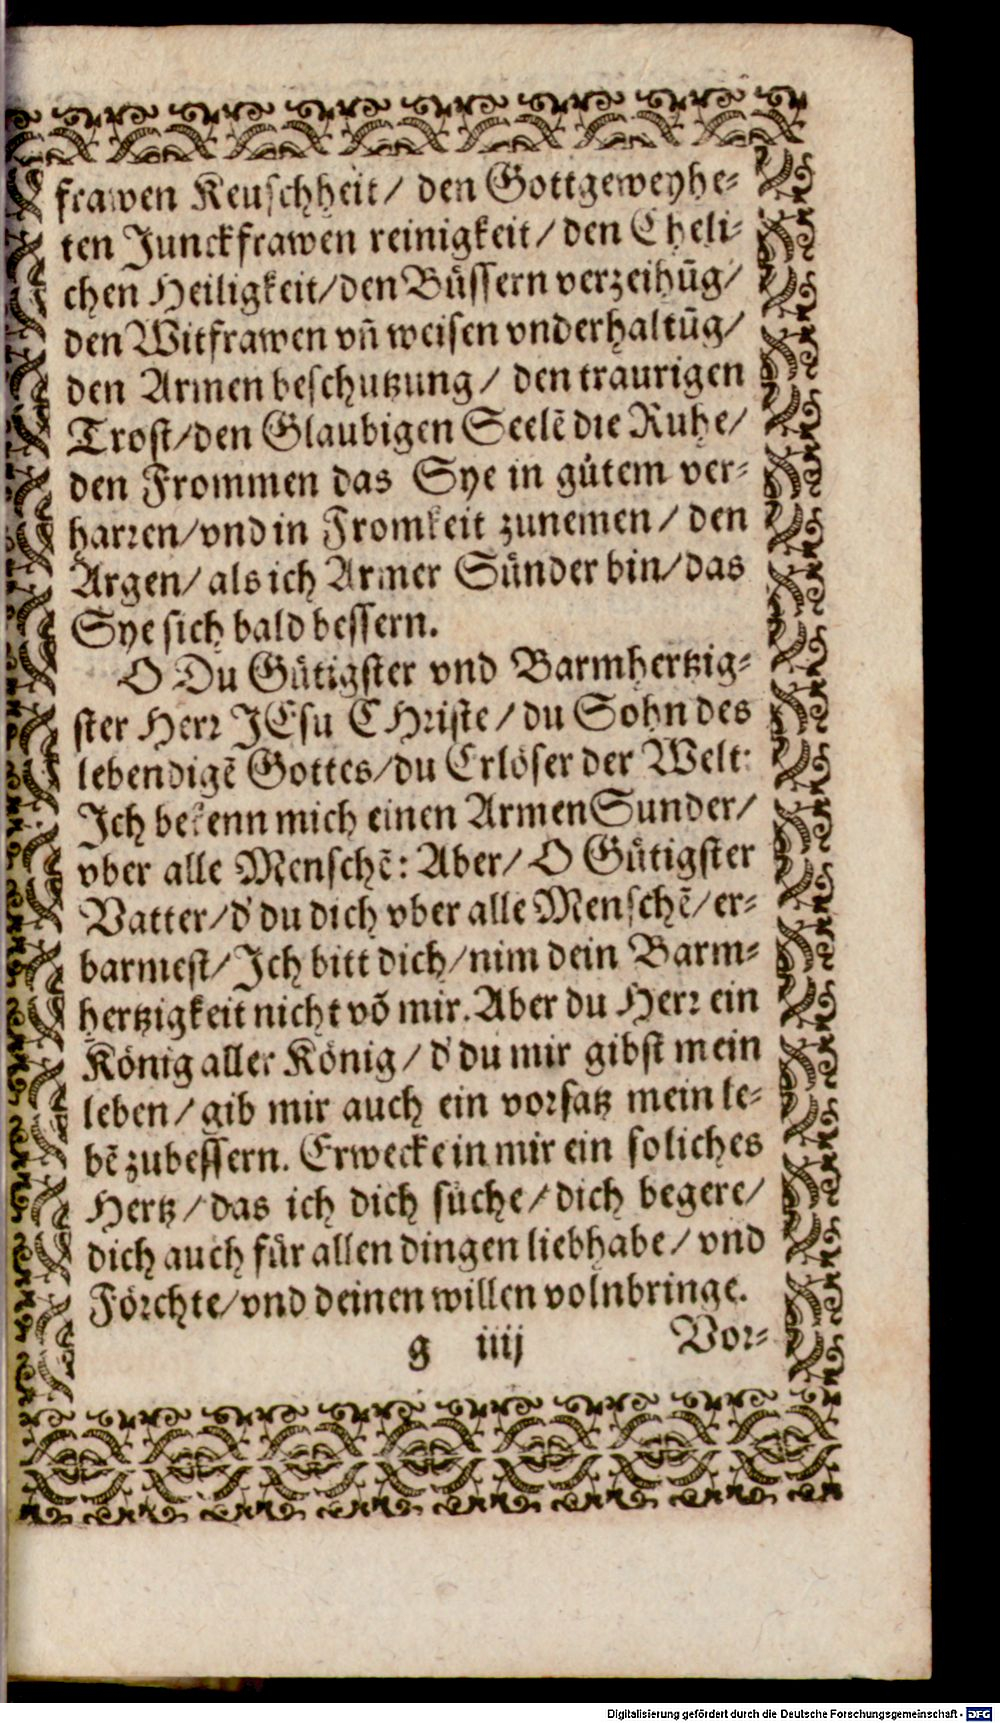 frawen Keuschheit/ den Gottgeweyhe-
ten Junckfrawen reinigkeit/ den Eheli-
chen Heiligkeit/ den Büssern verzeihūg/
den Witfrawen vn̄ weisen vnderhaltūg/
den Armen beschutzung/ den traurigen
Trost/ den Glaubigen Seelē die Ruhe/
den Frommen das Sye in gůtem ver-
harren/ vnd in Fromkeit zunemen/ den
Argen/ als ich Armer Sünder bin/ das
Sye sich bald bessern.
O Du Gütigster vnd Barmhertzig-
ster Herr JEsu CHriste/ du Sohn des
lebendigē Gottes/ du Erlöser der Welt:
Ich bekenn mich einen Armen Sunder/
vber alle Menschē: Aber/ O Gütigster
Vatter/ d' du dich vber alle Menschē/ er-
barmest/ Ich bitt dich/ nim dein Barm-
hertzigkeit nicht vō mir. Aber du Herr ein
König aller König/ d' du mir gibst mein
leben/ gib mir auch ein vorsatz mein le-
bē zubessern. Erwecke in mir ein soliches
Hertz/ das ich dich sůche/ dich begere/
dich auch für allen dingen liebhabe/ vnd
Förchte/ vnd deinen willen volnbringe.
g iiij Vor-
Digitalisierung gefördert durch die Deutsche Forschungsgemeinschaft - DFG